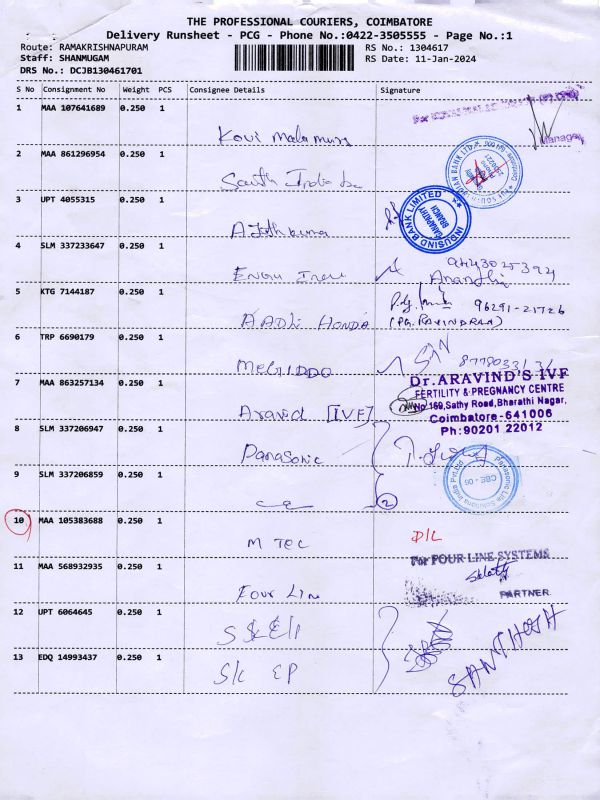 THE PROFESSIONAL COURIERS, COIMBATORE
Delivery Runsheet - PCG - Phone No.:0422-3505555 - Page No.:1
Route: RAMAKRISHNAPURAM RS No.: 1304617
Staff: SHANMUGAM RS Date: 11-Jan-2024
DRS No.: DCJB130461701
S No Consignment No Weight PCS Consignee Details Signature
1 MAA 107641689 0.250 1
Kovi
Manager
2 MAA 861296954 0.250 1
South India
3 UPT 4055315 0.250 1
INDUSIND BANK LIMITED
GANAPATHY
BRANCH
4 SLM 337233647 0.250 1
Anandhi
5 KTG 7144187 0.250 1
AADHI HONDA
96291-21726
(PG. RAVINDRAN)
6 TRP 6690179 0.250 1
MEGIDDO
7 MAA 863257134 0.250 1
Dr.ARAVIND'S IVF
FERTILITY & PREGNANCY CENTRE
No 169,Sathy Road,Bharathi Nagar,
Coimbatore-641006
Ph:90201 22012
Aravid [IVF]
8 SLM 337206947 0.250 1
Panasonic
9 SLM 337206859 0.250 1
2
Panasonic Life Solutions India Pvt.Ltd
CBE - 06
10 MAA 105383688 0.250 1
M TEC
D/L
11 MAA 568932935 0.250 1
For FOUR LINE SYSTEMS
PARTNER
Four Line
12 UPT 6064645 0.250 1
13 EDQ 14993437 0.250 1
S/C EP
SANTHOSH